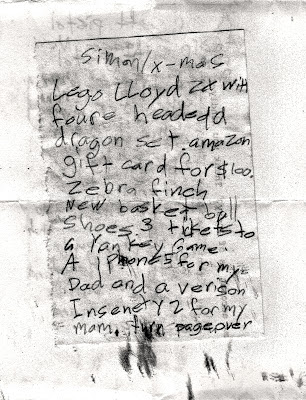 Simon/x-mas
Lego LLoyd ZX with
foure headedd
dragon set. amazon
gift card for $100.
Zebra finch
New basket ball
Shoes. 3 tickets to
a Yankey Game.
A iPhone 5 for my
Dad and a verison
Insene Y 2 for my
mam. turn page over